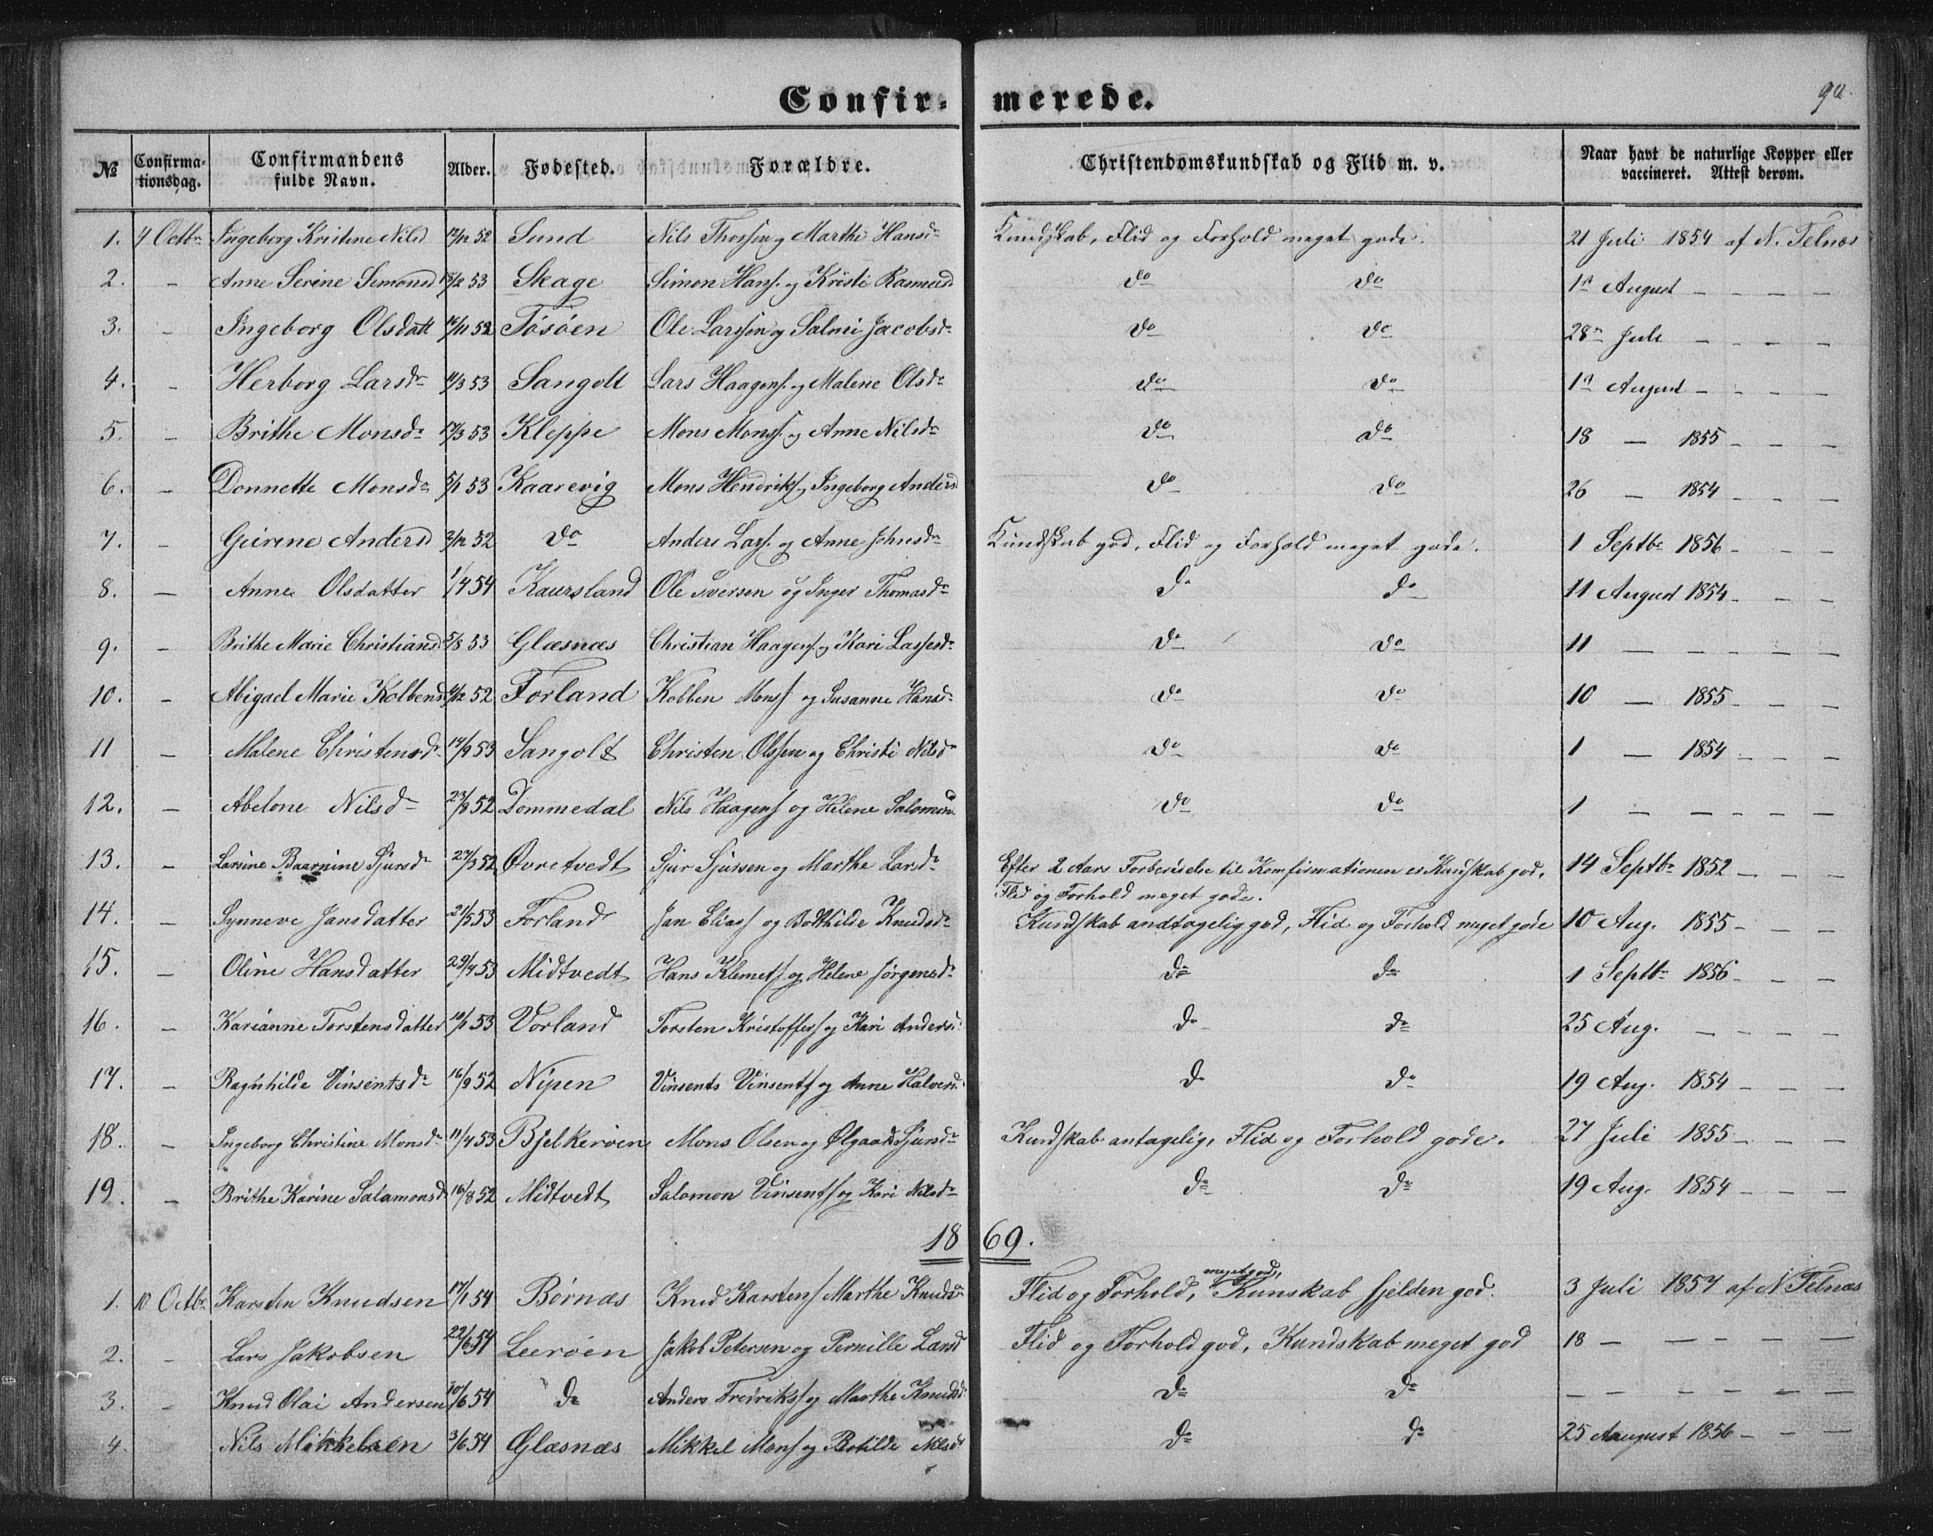 Confir- merede. 90.
№ Confirma-tionsdag. Confirmandens fulde Navn. Alder. Fødested. Forældre. Christendomskundskab og Flid m. v. Naar havt de naturlige Kopper eller vaccineret. Attest derom.
1. 4 Octbr Ingeborg Kristine Nilsd 12/12 52 Sund Nils Thorsen og Marthe Hansdr Kundskab, Flid og Forhold meget gode. 21 Juli 1854 af N. Telnæs
2. - Anne Serine Simonsd 18/2 53 Skage Simon Hans. og Kristi Rasmusd do do 1st August - - - -
3. - Ingeborg Olsdatt 16/11 52 Tösöen Ole Larssen og Salmi Jacobsdr do do 28n Juli - - - -
4. - Herborg Larsdr 11/3 53 Sangolt Lars Haagens. og Malene Olsdr do do 1st August - - - -
5. - Brithe Monsdr 17/3 53 Kleppe Mons Mons. og Anne Nilsdr do do 18 - 1855 - - -
6. - Donnette Monsdr 5/1 53 Kaarevig Mons Hendriks. og Ingeborg Andersd do do 26 - 1854 - - -
7. - Geirine Andersd 2/12 52 do Anders Lars. og Anne Johnsdr Kundskab god, Flid og Forhold meget gode. 1 Septbr 1856 - - -
8. - Anne Olsdatter 1/4 54 Kaursland Ole Iversen og Inger Thomasdr do do 11 August 1854 - - -
9. - Brithe Marie Christiansd 3/8 53 Glæsnæs Christian Haagens. og Kari Lassesdr do do 11 - - - - -
10. - Abigael Marie Kolbensd 4/12 52 Forland Kobben Mons. og Susanne Hansdr do do 10 - 1855 - - -
11 - Malene Christensdr 14/9 53 Sangolt Christen Olssen og Christi Nilsdr do do 1 - 1854 - - -
12. - Abelone Nilsdr 23/9 52 Dommedal Nils Haagens. og Helene Salomonsd do do 1 - - - - -
13. - Larsine Baarnine Sjursdr 27/3 52 Øvretvedt Sjur Sjursen og Marthe Larsdr Efter 2 Aars Forberedelse til Komfirmationen er Kundskab god, Flid og Forhold meget gode. 14 Septbr 1852 - - -
14. - Synneve Jansdatter 21/5 53 Forland Jan Elias. og Bothilde Knudsdr Kundskab andtagelig god, Flid og Forhold meget gode 10 Aug. 1855 - - -
15. - Oline Hansdatter 29/4 53 Midtvedt Hans Klemets. og Helene Jørgensdr do do 1 Septbr 1856 - - -
16. - Karianne Torstensdatter 10/1 53 Vorland Torsten Kristoffers. og Kari Andersd. do do 25 Aug. - - - -
17. - Ragnhilde Vinsentsdr 16/9 52 Nipen Vinsents Vinsents. og Anne Halversd. do do 19 Aug. 1854 - - -
18. - Ingeborg Christine Monsdr 11/4 53 Bjelkerøen Mons Olsen og Ølgaard Sjursdr Kundskab antagelig, Flid og Forhold gode. 27 Juli 1855 - - -
19. - Brithe Karine Salamonsd 16/8 52 Midtvedt Salomon Vinsents. og Kari Nilsdr do do 19 Aug. 1854 - - -
1869.
1. 10 Octbr. Karsten Knudsen 17/1 54 Børnæs Knud Karstens. Marthe Knudsdr Flid og Forhold, meget god, Kunskab sjelden god. 3 Juli 1854 af N Telnæs
2. - Lars Jakobsen 22/6 54 Leerøen Jakob Petersen og Pernille Larsd Flid og Forhold god, Kundskab meget god 18 - - - - -
3. - Knud Olai Andersen 10/6 54 do Anders Fredriks. og Marthe Knudsd do do - - - - - -
4. - Nils Mikkelsen 3/6 54 Glæsnæs Mikkel Mons. og Botilde Nilsd do do 25 August 1856 - - -